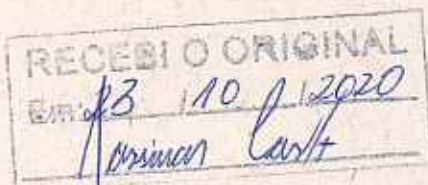 RECEBI O ORIGINAL
Em: 23 / 10 / 2020